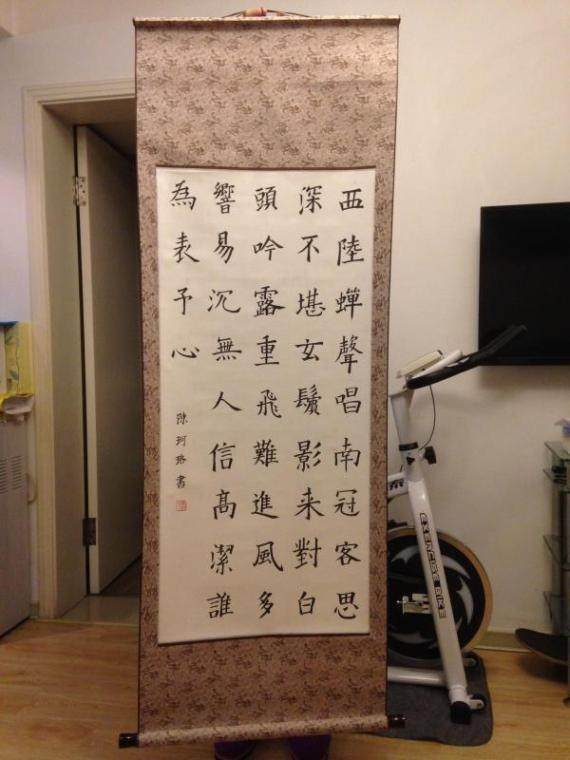 西陸蟬聲唱南冠客思
深不堪玄鬢影来對白
頭吟露重飛難進風多
響易沉無人信髙潔誰
為表予心
陳珂珞書
EXERCISE BIKE